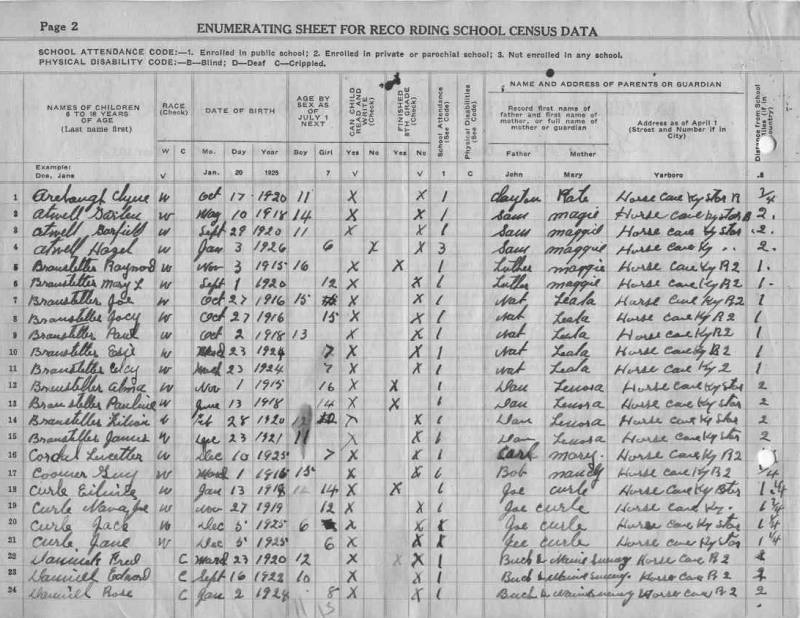 Page 2 ENUMERATING SHEET FOR RECO RDING SCHOOL CENSUS DATA
SCHOOL ATTENDANCE CODE:—1. Enrolled in public school; 2. Enrolled in private or parochial school; 3. Not enrolled in any school.
PHYSICAL DISABILITY CODE:—B—Blind; D—Deaf C—Crippled.
NAMES OF CHILDREN 6 TO 18 YEARS OF AGE (Last name first) RACE (Check) DATE OF BIRTH AGE BY SEX AS OF JULY 1 NEXT CAN CHILD READ AND WRITE (Check) FINISHED 8TH GRADE (Check) School Attendance (See Code) Physical Disabilities (See Code) NAME AND ADDRESS OF PARENTS OR GUARDIAN Distance from School
Record first name of father and first name of mother, or full name of mother or guardian Address as of April 1 (Street and Number if in City)
W C Mo. Day Year Boy Girl Yes No Yes No 1 Father Mother
Example: Doe, Jane V Jan. 20 1925 7 V V 1 C John Mary Yarboro .8
1 W Oct 17 1920 11 X X 1 Clayton Kate Horse Cave Ky 3/4
2 Atwell W May 10 1918 14 X X 1 Sam Magie Horse Cave Ky Star 2.
3 Atwell Garfield W Sept 29 1920 11 X X 1 Sam Maggie Horse Cave Ky Star 2.
4 Atwell Hazel W Jan 3 1926 6 X X 3 Sam Maggie Horse Cave Ky .. 2.
5 Branstetter Raymod W Nov 3 1915 16 X X 1 Luther Maggie Horse Cave Ky R2 1.
6 Branstetter Mary L W Sept 1 1920 12 X X 1 Luther Maggie Horse Cave Ky R2 1.
7 Branstetter Joe W Oct 27 1916 15 X X 1 Nat Leala Horse Cave Ky R2 1
8 Branstetter Jocy W Oct 27 1916 15 X X 1 Nat Leala Horse Cave Ky R2 1
9 Branstetter Paul W Oct 2 1918 13 X X 1 Nat Leala Horse Cave Ky R2 1
10 Branstetter W 23 1924 7 X X 1 Nat Leala Horse Cave Ky R2 1
11 Branstetter W 23 1924 7 X X 1 Nat Leala Horse Cave Ky 2 1
12 Branstetter Alma W Nov 1 1915 16 X X 1 Dan Lenora Horse Cave Ky Star 2
13 Branstetter Pauline W June 13 1918 14 X X 1 Dan Lenora Horse Cave Ky Star 2
14 Branstetter 28 1920 X 1 Dan Lenora Horse Cave Ky Star 2
15 Branstetter James W 23 1921 11 X 1 Dan Lenora Horse Cave Ky Star 2
16 W Dec 10 1925 7 X X 1 Carl Mary. Horse Cave Ky R2
17 Coomer Guy W March 1 1916 15 X X Bob Nancy Horse Cave Ky R2
18 Curle W Jan 13 1918 14 X X 1 Joe Curle Horse Cave Ky Star 1 1/4
19 Curle W Nov 27 1919 12 X X 1 Joe Curle Horse Cave Ky. 1 1/4
20 Curle Jack W Dec 5 1925 6 X X Joe Curle Horse Cave Ky Star 1 1/4
21 Curle Jane W Dec 5 1925 6 X X Joe Curle Horse Cave Ky Star 1 1/4
22 Fred C March 23 1920 12 X X 1 Horse Cave R2 2
23 Edward C Sept 16 1922 10 X X 1 Horse Cave R2 2
24 Rose C Jan 2 8 X X 1 Horse Cave R2 2